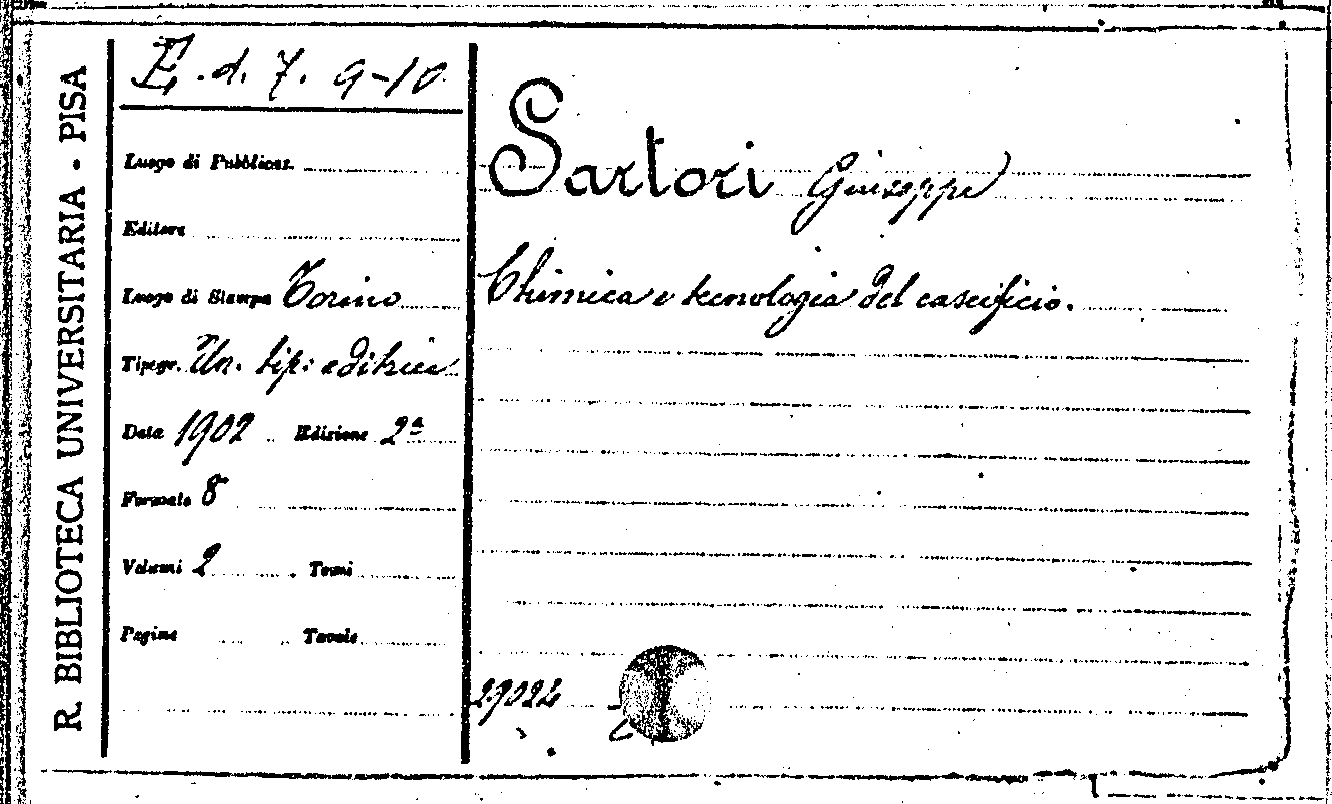 R. BIBLIOTECA UNIVERSITARIA - PISA
E. d. 7. 9-10
Luogo di Pubblicaz.
Editore
Luogo di Stampa Torino
Tipogr. Un. tip: editrice
Data 1902 Edizione 2ª
Formato 8°
Volumi 2 Tomi
Pagine Tavole
Sartori Giuseppe
Chimica e tecnologia del caseificio.
29024